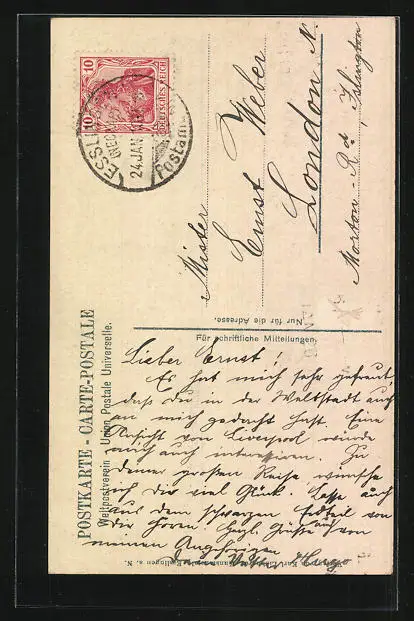 POSTKARTE - CARTE-POSTALE
Weltpostverein Union Postale Universelle.
10 10
DEUTSCHES REICH
ESSLI
24 JAN
Postamt
Mister
Ernst Weber
London N.
Morton-Rd Islington
Nur für die Adresse.
Für schriftliche Mitteilungen.
Lieber Ernst!
Es hat mich sehr gefreut,
dass du in der Weltstadt auch
an mich gedacht hast. Eine
Ansicht von Liverpool würde
mich auch interessieren. Zu
deiner großen Reise wünsche
ich dir viel Glück. Lasse auch
aus dem schwarzen Erdteil von
dir hören. Herzl. Grüße auch von
meinen Angehörigen
Dein
Esslingen a. N.